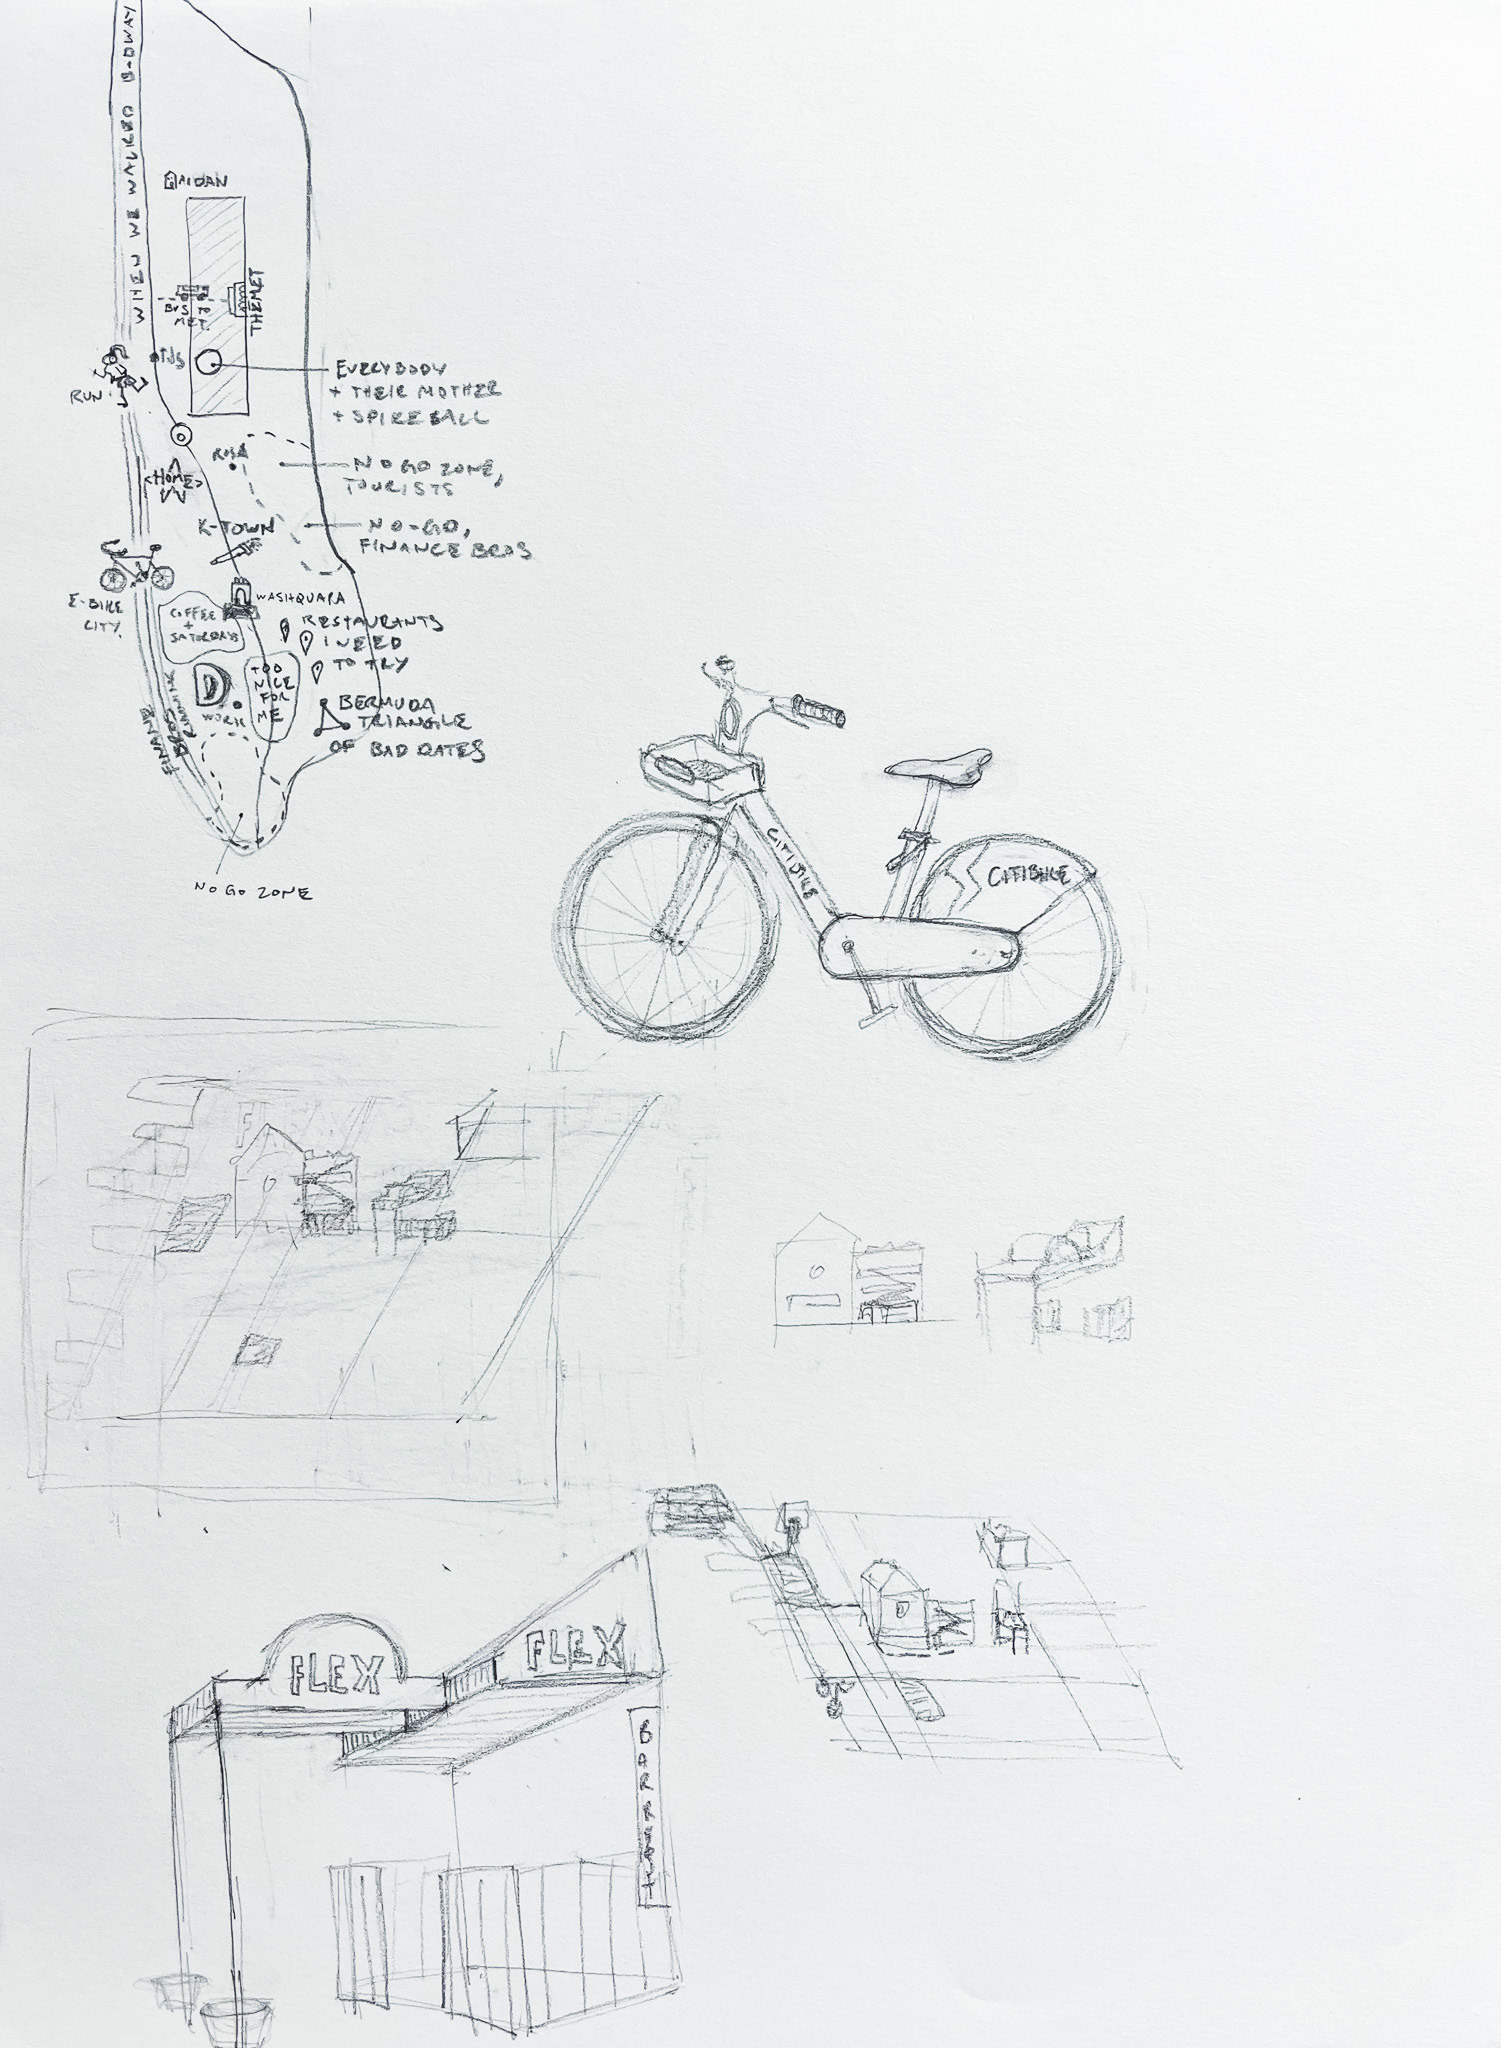 WHEN WE WALKED B-DWAY
AIDAN
BUS TO
MET.
THE MET
RUN
EVERYBODY
+ THEIR MOTHER
+ SPIKEBALL
ROSA
NO GO ZONE,
TOURISTS
<HOME>
K-TOWN
NO-GO,
FINANCE BROS
E-BIKE
CITY.
WASHQUARA
COFFEE
+
SATURDAYS
RESTAURANTS
I NEED
TO TRY
D
WORK
TOO
NICE
FOR
ME
BERMUDA
TRIANGLE
OF BAD DATES
FINANCE
BROS
RUNNING
NO GO ZONE
CITIBIKE
CITIBIKE
FLEX
FLEX